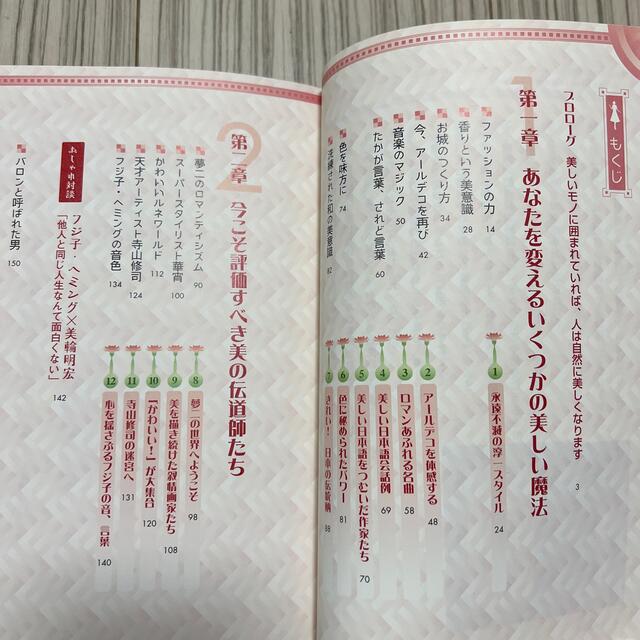 もくじ
プロローグ 美しいモノに囲まれていれば、人は自然に美しくなります 3
第一章 あなたを変えるいくつかの美しい魔法
1
ファッションの力 14
香りという美意識 28
お城のつくり方 34
今、アールデコを再び 42
音楽のマジック 50
たかが言葉、されど言葉 60
色を味方に 74
洗練された和の美意識 82
1 永遠不滅の淳一スタイル 24
2 アールデコを体感する 48
3 ロマンあふれる名曲 58
4 美しい日本語会話例 69
5 美しい日本語をつむいだ作家たち 70
6 色に秘められたパワー 81
7 きれい！日本の伝統柄 88
第二章 今こそ評価すべき美の伝道師たち
2
夢二のロマンティシズム 90
スーパースタイリスト華宵 100
かわいいルネワールド 112
天才アーティスト寺山修司 124
フジ子・ヘミングの音色 134
8 夢二の世界へようこそ 98
9 美を描き続けた叙情画家たち 108
10 “かわいい！”が大集合 120
11 寺山修司の迷宮へ 131
12 心を揺さぶるフジ子の音、言葉 140
おしゃれ対談
フジ子・ヘミング×美輪明宏
「他人と同じ人生なんて面白くない」 142
バロンと呼ばれた男 150